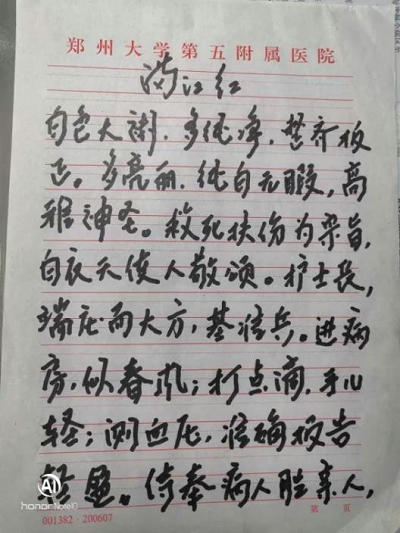 郑州大学第五附属医院
满江红
白色大褂,多纯净,整齐板
正。多亮丽,纯白无暇,高
雅神圣。救死扶伤为宗旨,
白衣天使人敬颂。护士长,
端庄而大方,基准兵。进病
房,似春风;打点滴,手心
轻;测血压,准确报告
轻盈。侍奉病人胜亲人,
AI
honor Note10
001382·200607
第 页